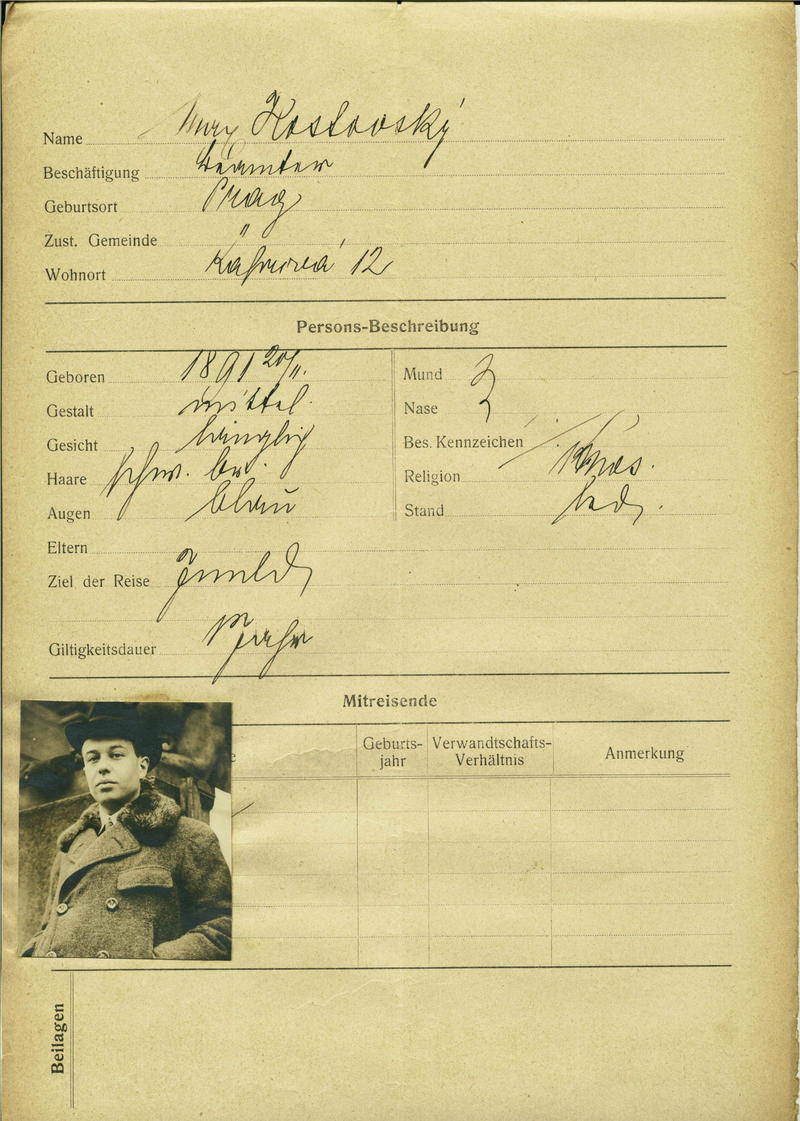 Name Max Kostovský
Beschäftigung Beamter
Geburtsort Prag
Zust. Gemeinde "
Wohnort 12
Persons-Beschreibung
Geboren 1891 20/II.
Gestalt mittel.
Gesicht länglig
Haare schw. br.
Augen blau
Mund
Nase
Bes. Kennzeichen
Religion mos.
Stand led.
Eltern
Ziel der Reise Inland
Giltigkeitsdauer 1 Jahr
Mitreisende
Geburts-jahr
Verwandtschafts-Verhältnis
Anmerkung
Beilagen